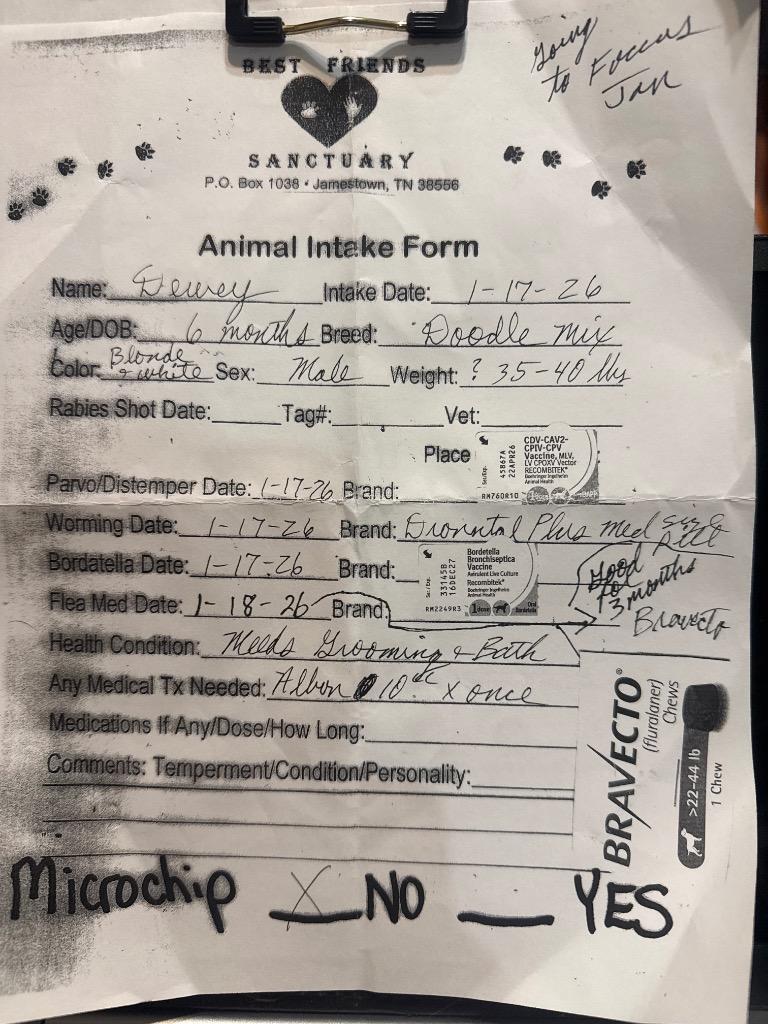 Going
to Foccus
Jan
BEST FRIENDS
SANCTUARY
P.O. Box 1038 • Jamestown, TN 38556
Animal Intake Form
Name: Dewey Intake Date: 1-17-26
Age/DOB: 6 months Breed: Doodle mix
Color: Blonde & white Sex: Male Weight: ? 35-40 lbs
Rabies Shot Date: Tag#: Vet:
Place
45867A
22APR26
Ser/Exp.
RM760R10
CDV-CAV2-
CPIV-CPV
Vaccine, MLV,
LV CPOXV Vector
RECOMBITEK®
Boehringer Ingelheim
Animal Health
Parvo/Distemper Date: 1-17-26 Brand:
Worming Date: 1-17-26 Brand: Drontal Plus med size
Bordatella Date: 1-17-26 Brand:
33145B
16DEC27
Ser/Exp.
RM2249R3
Bordetella
Bronchiseptica
Vaccine
Avirulent Live Culture
Recombitek®
Boehringer Ingelheim
Animal Health
1 dose
Oral
Bordetella
Good
for
3 months
Bravecto
Flea Med Date: 1-18-26 Brand:
Health Condition: Needs Grooming & Bath
Any Medical Tx Needed: Albon 10 cc x once
Medications If Any/Dose/How Long:
Comments: Temperment/Condition/Personality:
BRAVECTO®
(fluralaner)
Chews
>22-44 lb
1 Chew
Microchip X NO YES